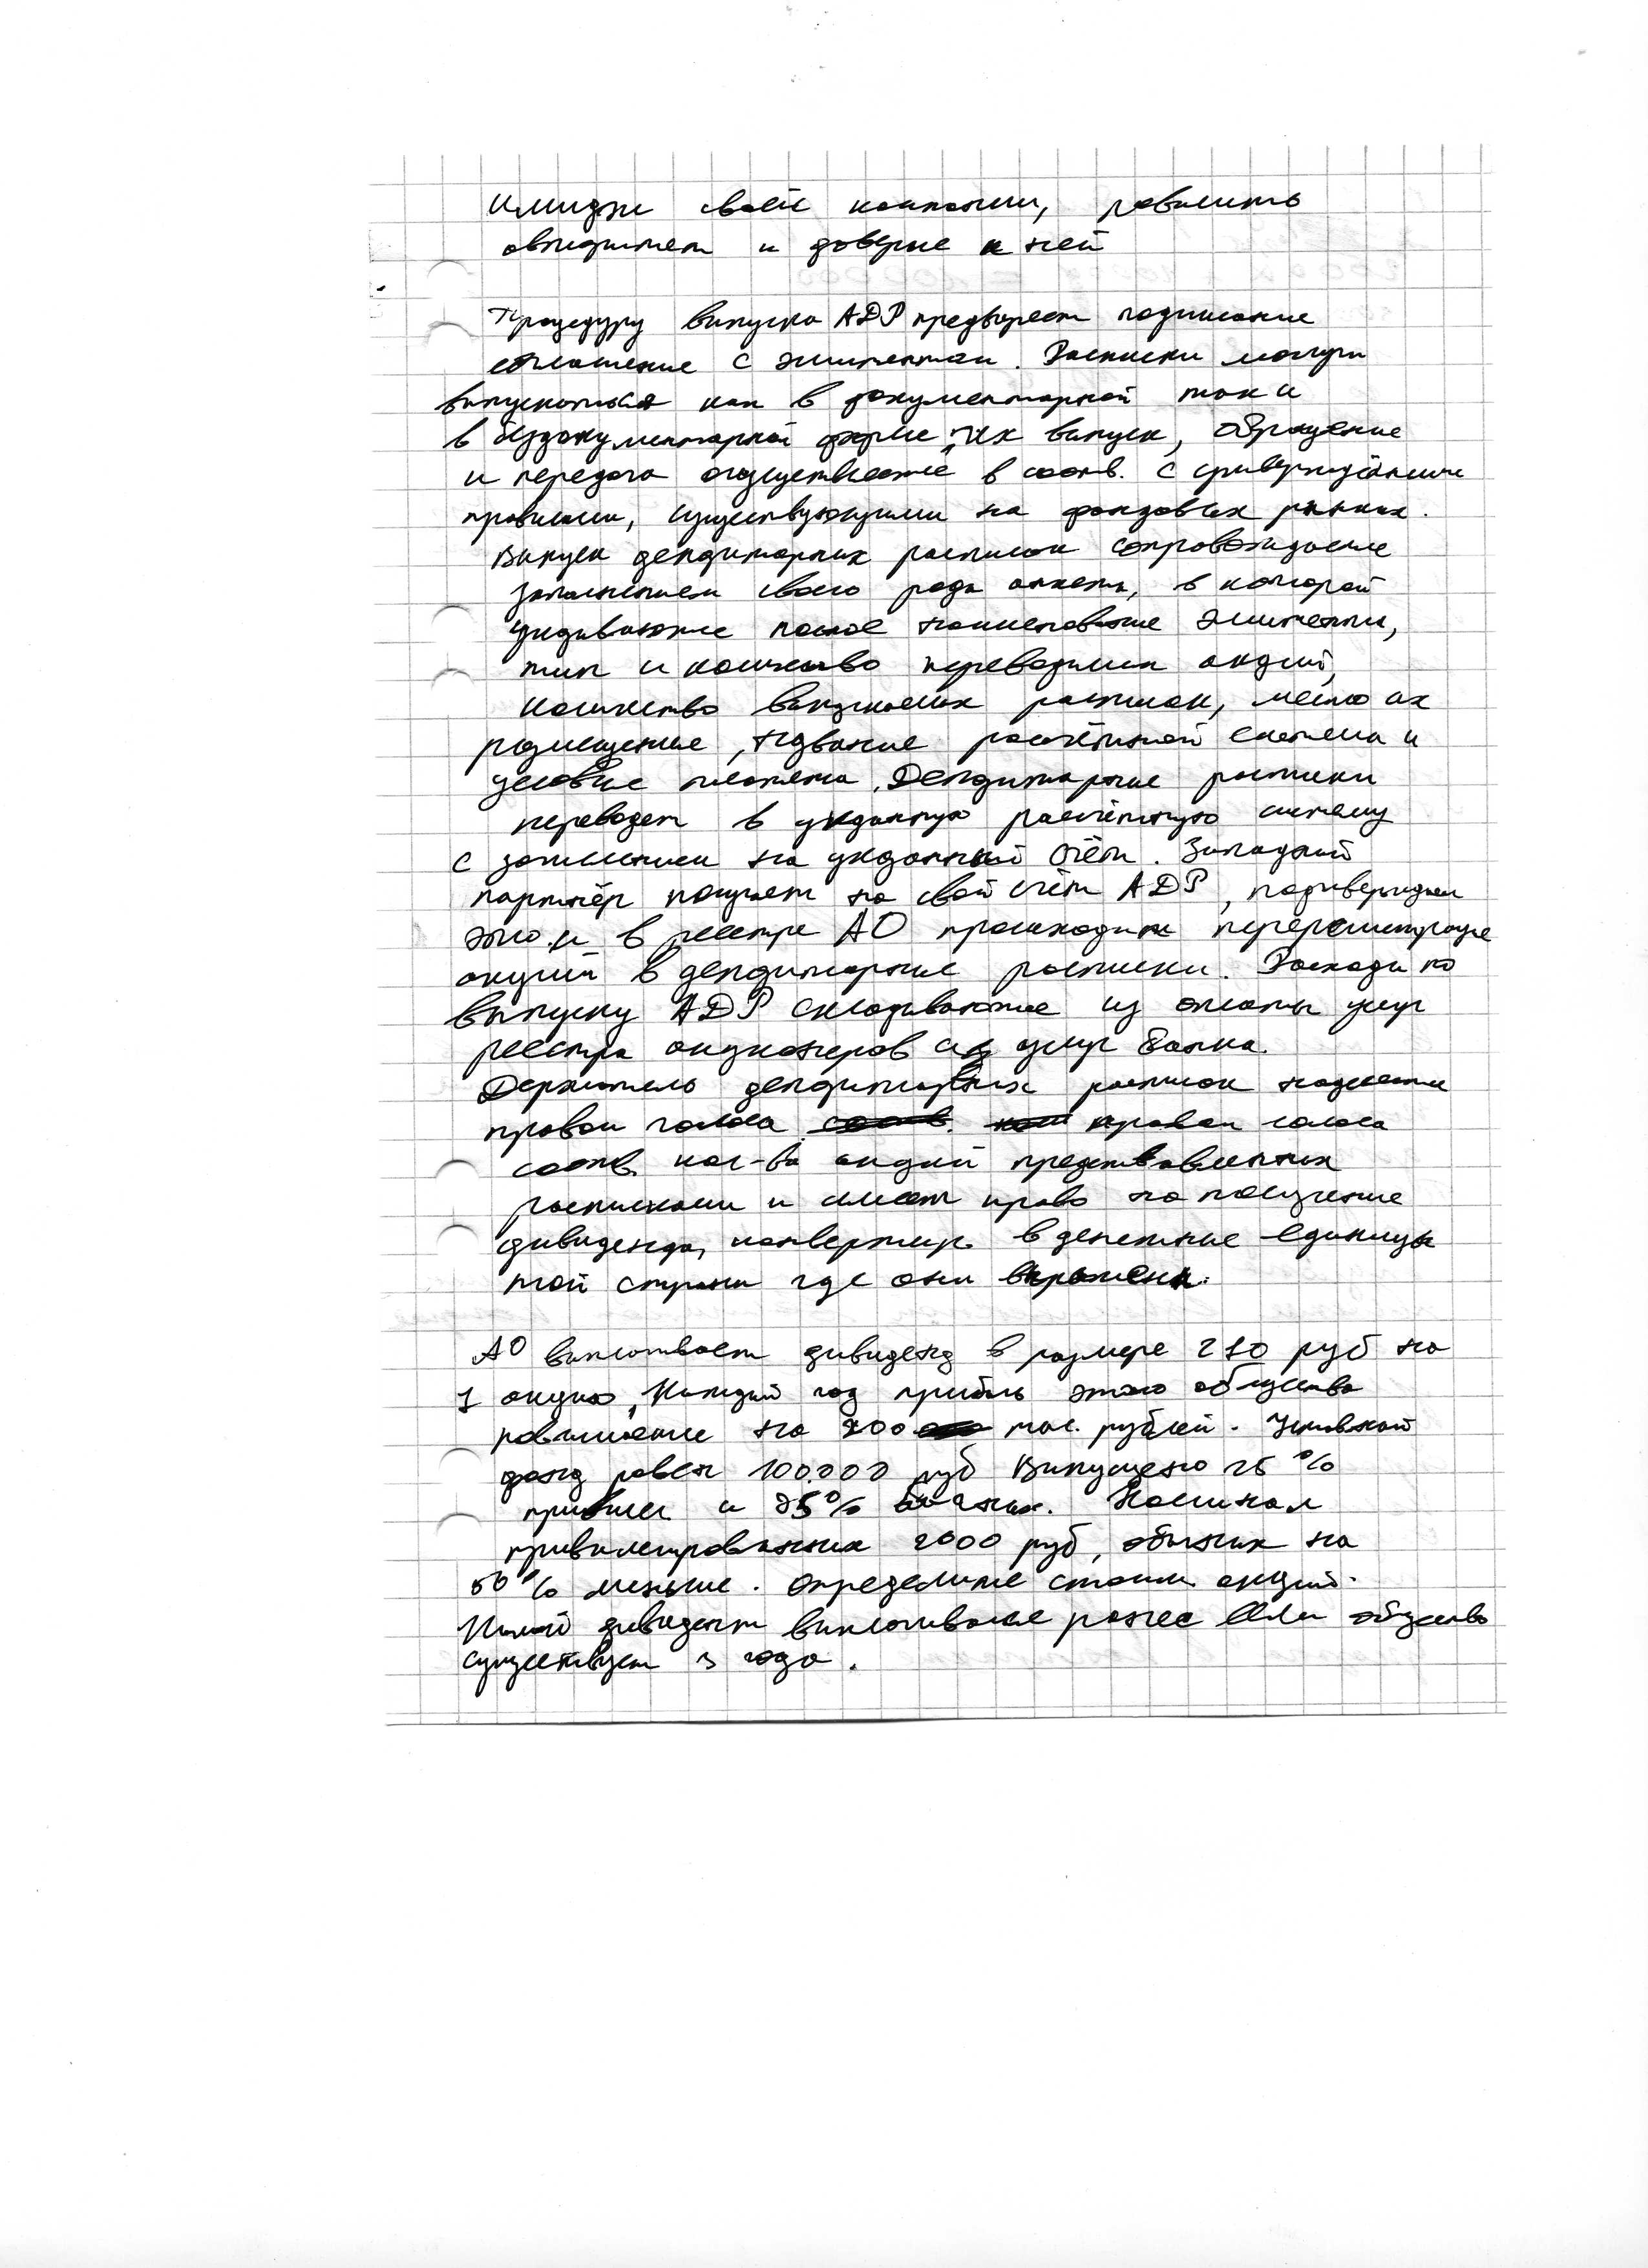 имидж своей компании, повысить
авторитет и доверие к ней
Процедуру выпуска АДР предворяет подписание
соглашение с эмитентом. Расписки могут
выпускаться как в документарной так и
в бездокументарной форме, их выпуск, обращение
и передача осуществляется в соотв. с
правилами, существующими на фондовых рынках.
Выпуск депозитарных расписок сопровождается
заполнением своего рода анкеты, в которой
указывается полное наименование эмитента,
тип и количество переводимых акций,
количество выпускаемых расписок, место их
размещение, название расчётной системы и
условие платежа. Депозитарные расписки
переводят в указанную расчётную систему
с зачислением на указанный счёт. Западный
партнёр получает на свой счёт АДР, подтверждает
это и в реестре АО происходит перерегистрация
акций в депозитарные расписки. Расходы по
выпуску АДР складываются из оплаты услуг
реестра акционеров и услуг банка.
Держатель депозитарных расписок наделяется
правом голоса правом голоса
соотв. кол-ва акций представленных
расписками и имеет право на получение
дивиденда, конвертир. в денежные единицы
той страны где они выражены.
АО выплачивает дивиденд в размере 210 руб на
1 акцию, Каждый год прибыль этого общества
повышается на 200 рублей. Уставной
фонд равен 100.000 руб Выпущено 25 %
привилег и 25% Номинал
привилегированных 2000 руб, обычных на
50 % меньше. Определите стоим. акций.
Какой дивидент выплачивался ранее если общество
существует 3 года.